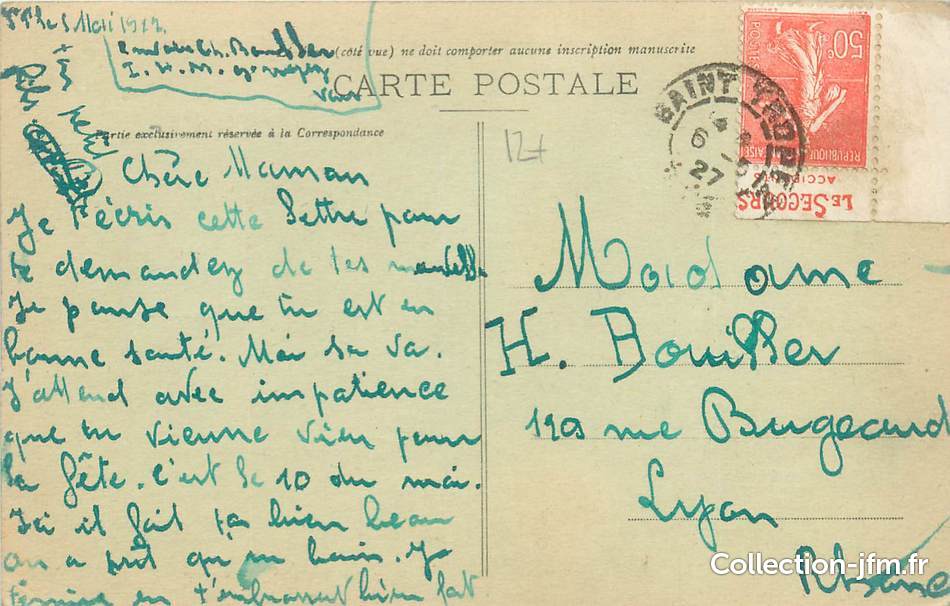 5 Mai
(côté vue) ne doit comporter aucune inscription manuscrite
CARTE POSTALE
Partie exclusivement réservée à la Correspondance
Chère Maman
Je t'écris cette lettre pour
te demandez de tes
Je panse que tu est en
bonne santé. Moi sa va.
J'attend avec impatience
que tu vienne pour
la fête. C'est le 10 du mai.
Ici il fait pas bien beau
on a prit qu'un bain. Je
termine en t'embrassant bien fat
ton petit
127
SAINT
6
27
50c
POSTES
RÉPUBLIQUE FRANÇAISE
LE SECOURS
ACCIDENTS
Madame
H. Bouiller
rue Bugeaud
Lyon
Rhône
Collection-jfm.fr